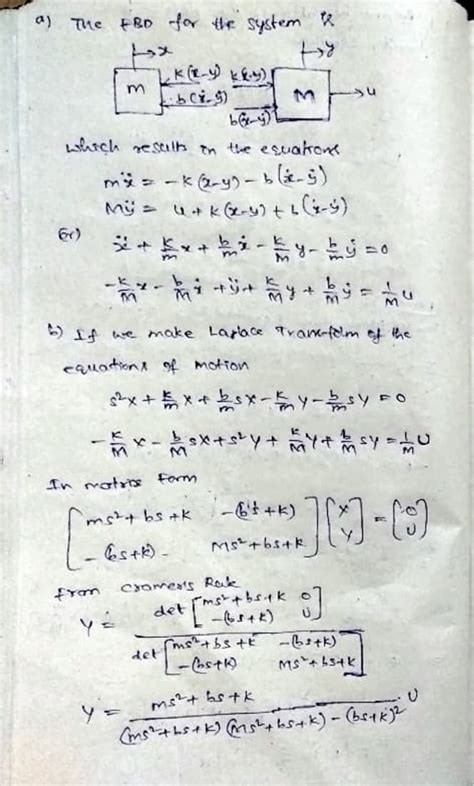 a) The FBD for the system is
x y
m k(x-y) k(x-y) M u
b(ẋ-ẏ)
b(ẋ-ẏ)
which results in the equations
mẍ = -k(x-y) - b(ẋ-ẏ)
Mÿ = u + k(x-y) + b(ẋ-ẏ)
(or) ẍ + k/m x + b/m ẋ - k/m y - b/m ẏ = 0
-k/M x - b/M ẋ + ÿ + k/M y + b/M ẏ = 1/M u
b) If we make Laplace Transform of the
equations of motion
s²X + k/m X + b/m sX - k/m Y - b/m sY = 0
-k/M X - b/M sX + s²Y + k/M Y + b/M sY = 1/M U
In matrix form
[ms²+bs+k -(bs+k)
-(bs+k) Ms²+bs+k] [X Y] = [0 U]
from cromer's Rule
Y = det [ms²+bs+k 0
-(bs+k) U]
det [ms²+bs+k -(bs+k)
-(bs+k) Ms²+bs+k]
Y = ms²+bs+k .U
(ms²+bs+k)(Ms²+bs+k) - (bs+k)²